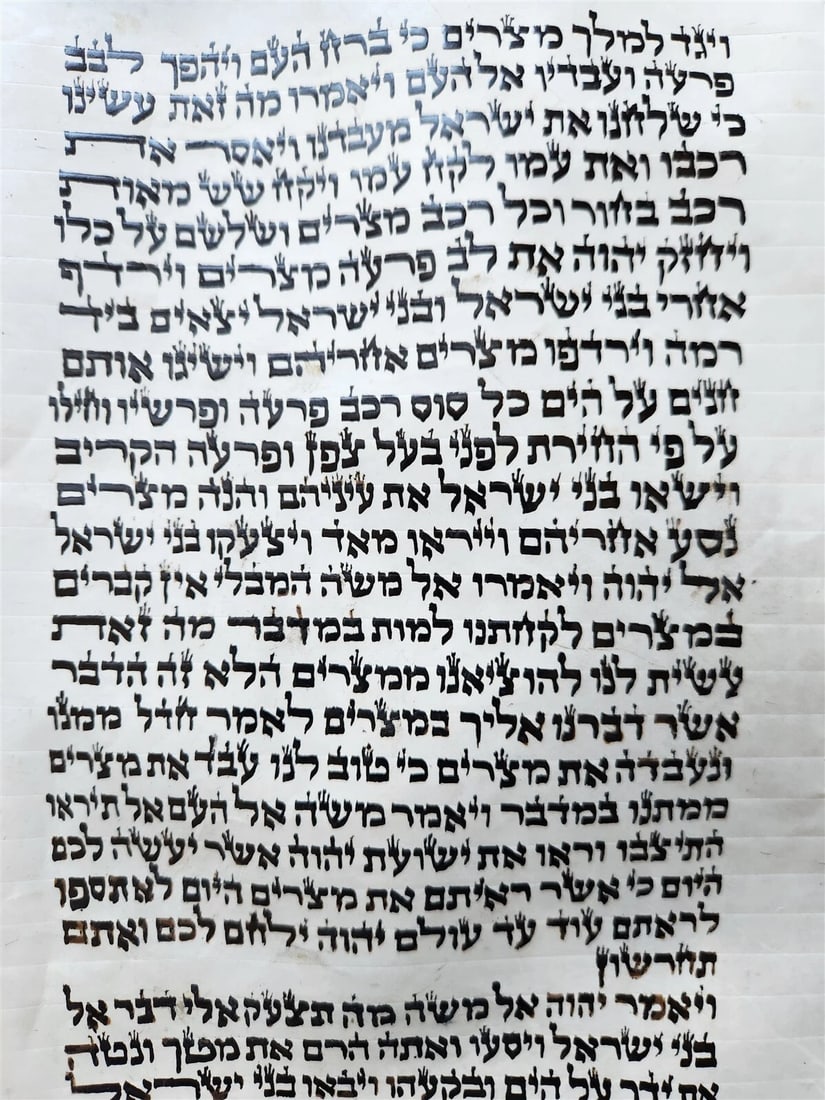 ויגד למלך מצרים כי ברח העם ויהפך לבב
פרעה ועבדיו אל העם ויאמרו מה זאת עשינו
כי שלחנו את ישראל מעבדנו ויאסר את
רכבו ואת עמו לקח עמו ויקח שש מאות
רכב בחור וכל רכב מצרים ושלשם על כלו
ויחזק יהוה את לב פרעה מצרים וירדף
אחרי בני ישראל ובני ישראל יצאים ביד
רמה וירדפו מצרים אחריהם וישיגו אותם
חנים על הים כל סוס רכב פרעה ופרשיו וחילו
על פי החירת לפני בעל צפן ופרעה הקריב
וישאו בני ישראל את עיניהם והנה מצרים
נסע אחריהם וייראו מאד ויצעקו בני ישראל
אל יהוה ויאמרו אל משה המבלי אין קברים
במצרים לקחתנו למות במדבר מה זאת
עשית לנו להוציאנו ממצרים הלא זה הדבר
אשר דברנו אליך במצרים לאמר חדל ממנו
ונעבדה את מצרים כי טוב לנו עבד את מצרים
ממתנו במדבר ויאמר משה אל העם אל תיראו
התיצבו וראו את ישועת יהוה אשר יעשה לכם
היום כי אשר ראיתם את מצרים היום לא תספו
לראתם עוד עד עולם יהוה ילחם לכם ואתם
תחרשון
ויאמר יהוה אל משה מה תצעק אלי דבר אל
בני ישראל ויסעו ואתה הרם את מטך ונטה
את ידך על הים ובקעהו ויבאו בני ישראל